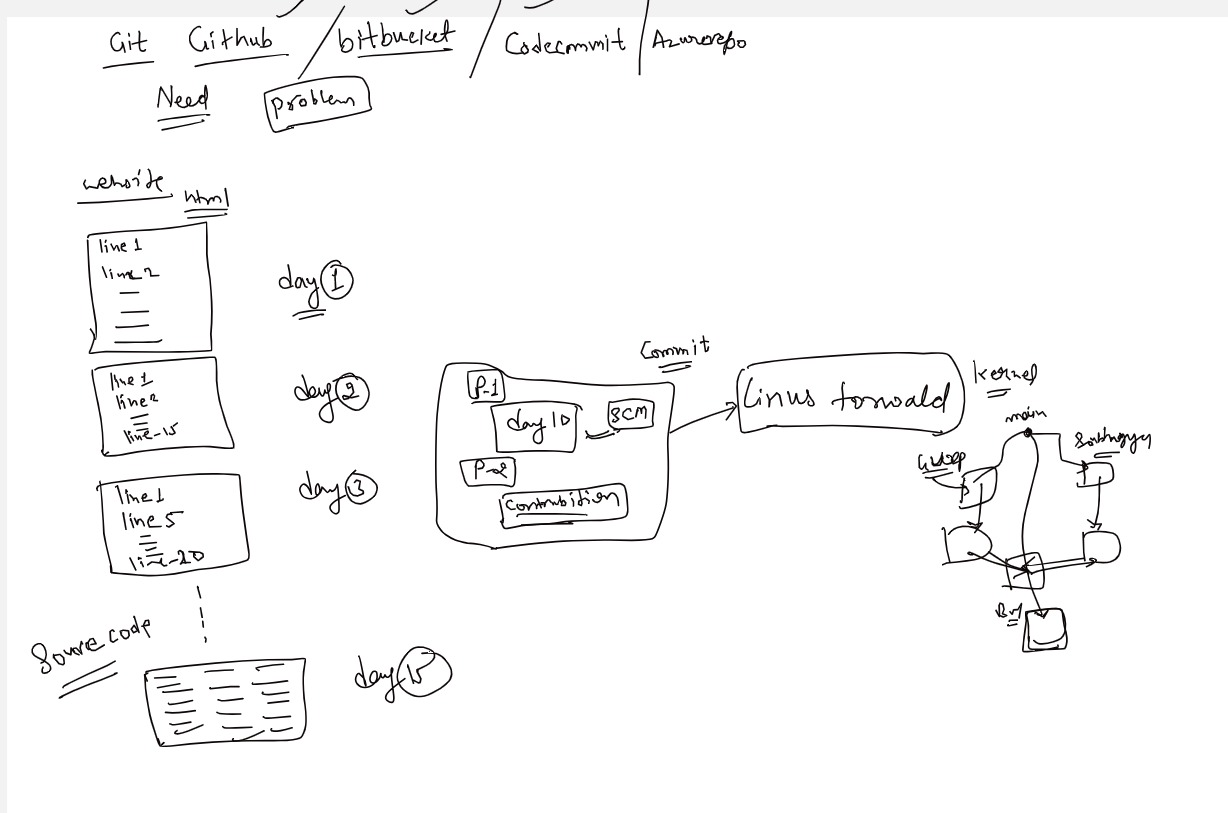 Git Github / bitbucket / Codecommit / Azurerepo
Need problem
website html
line 1
line 2
day 1
line 1
line 2
line-15
day 2
line 1
line 5
line-20
day 3
Source code
day 15
P-1
day 10 SCM
P-2
Contrubition
Commit
Linus torwald
kernel
main